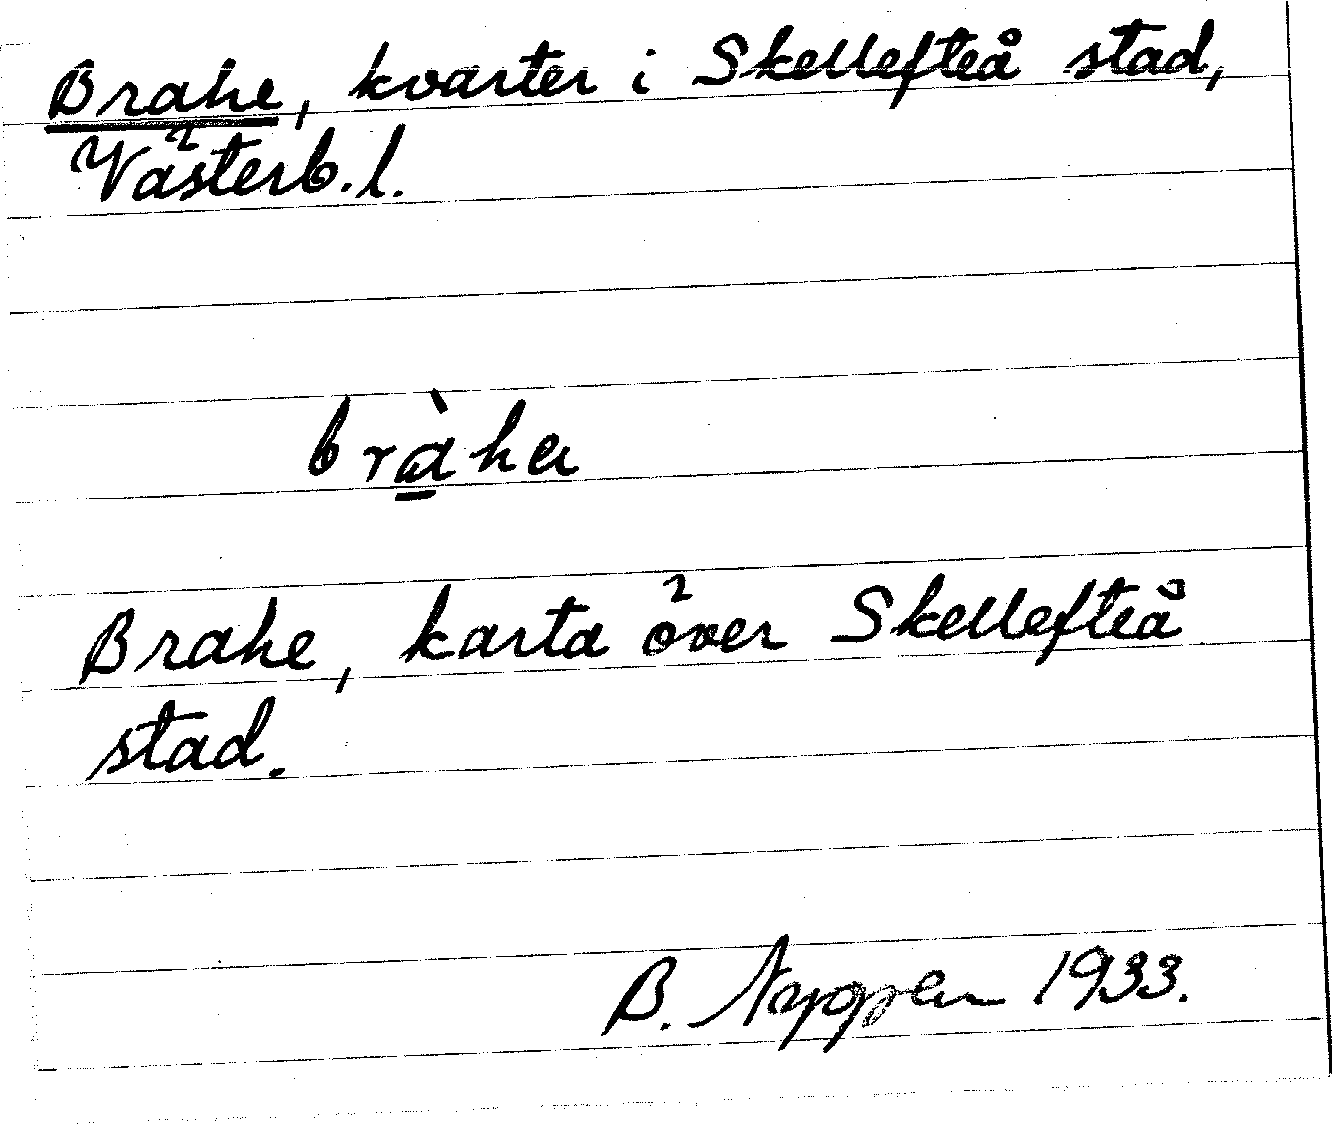 Brahe, kvarter i Skellefteå stad,
Västerb.l.
bràha
Brahe, karta över Skellefteå
stad.
B. 1933.